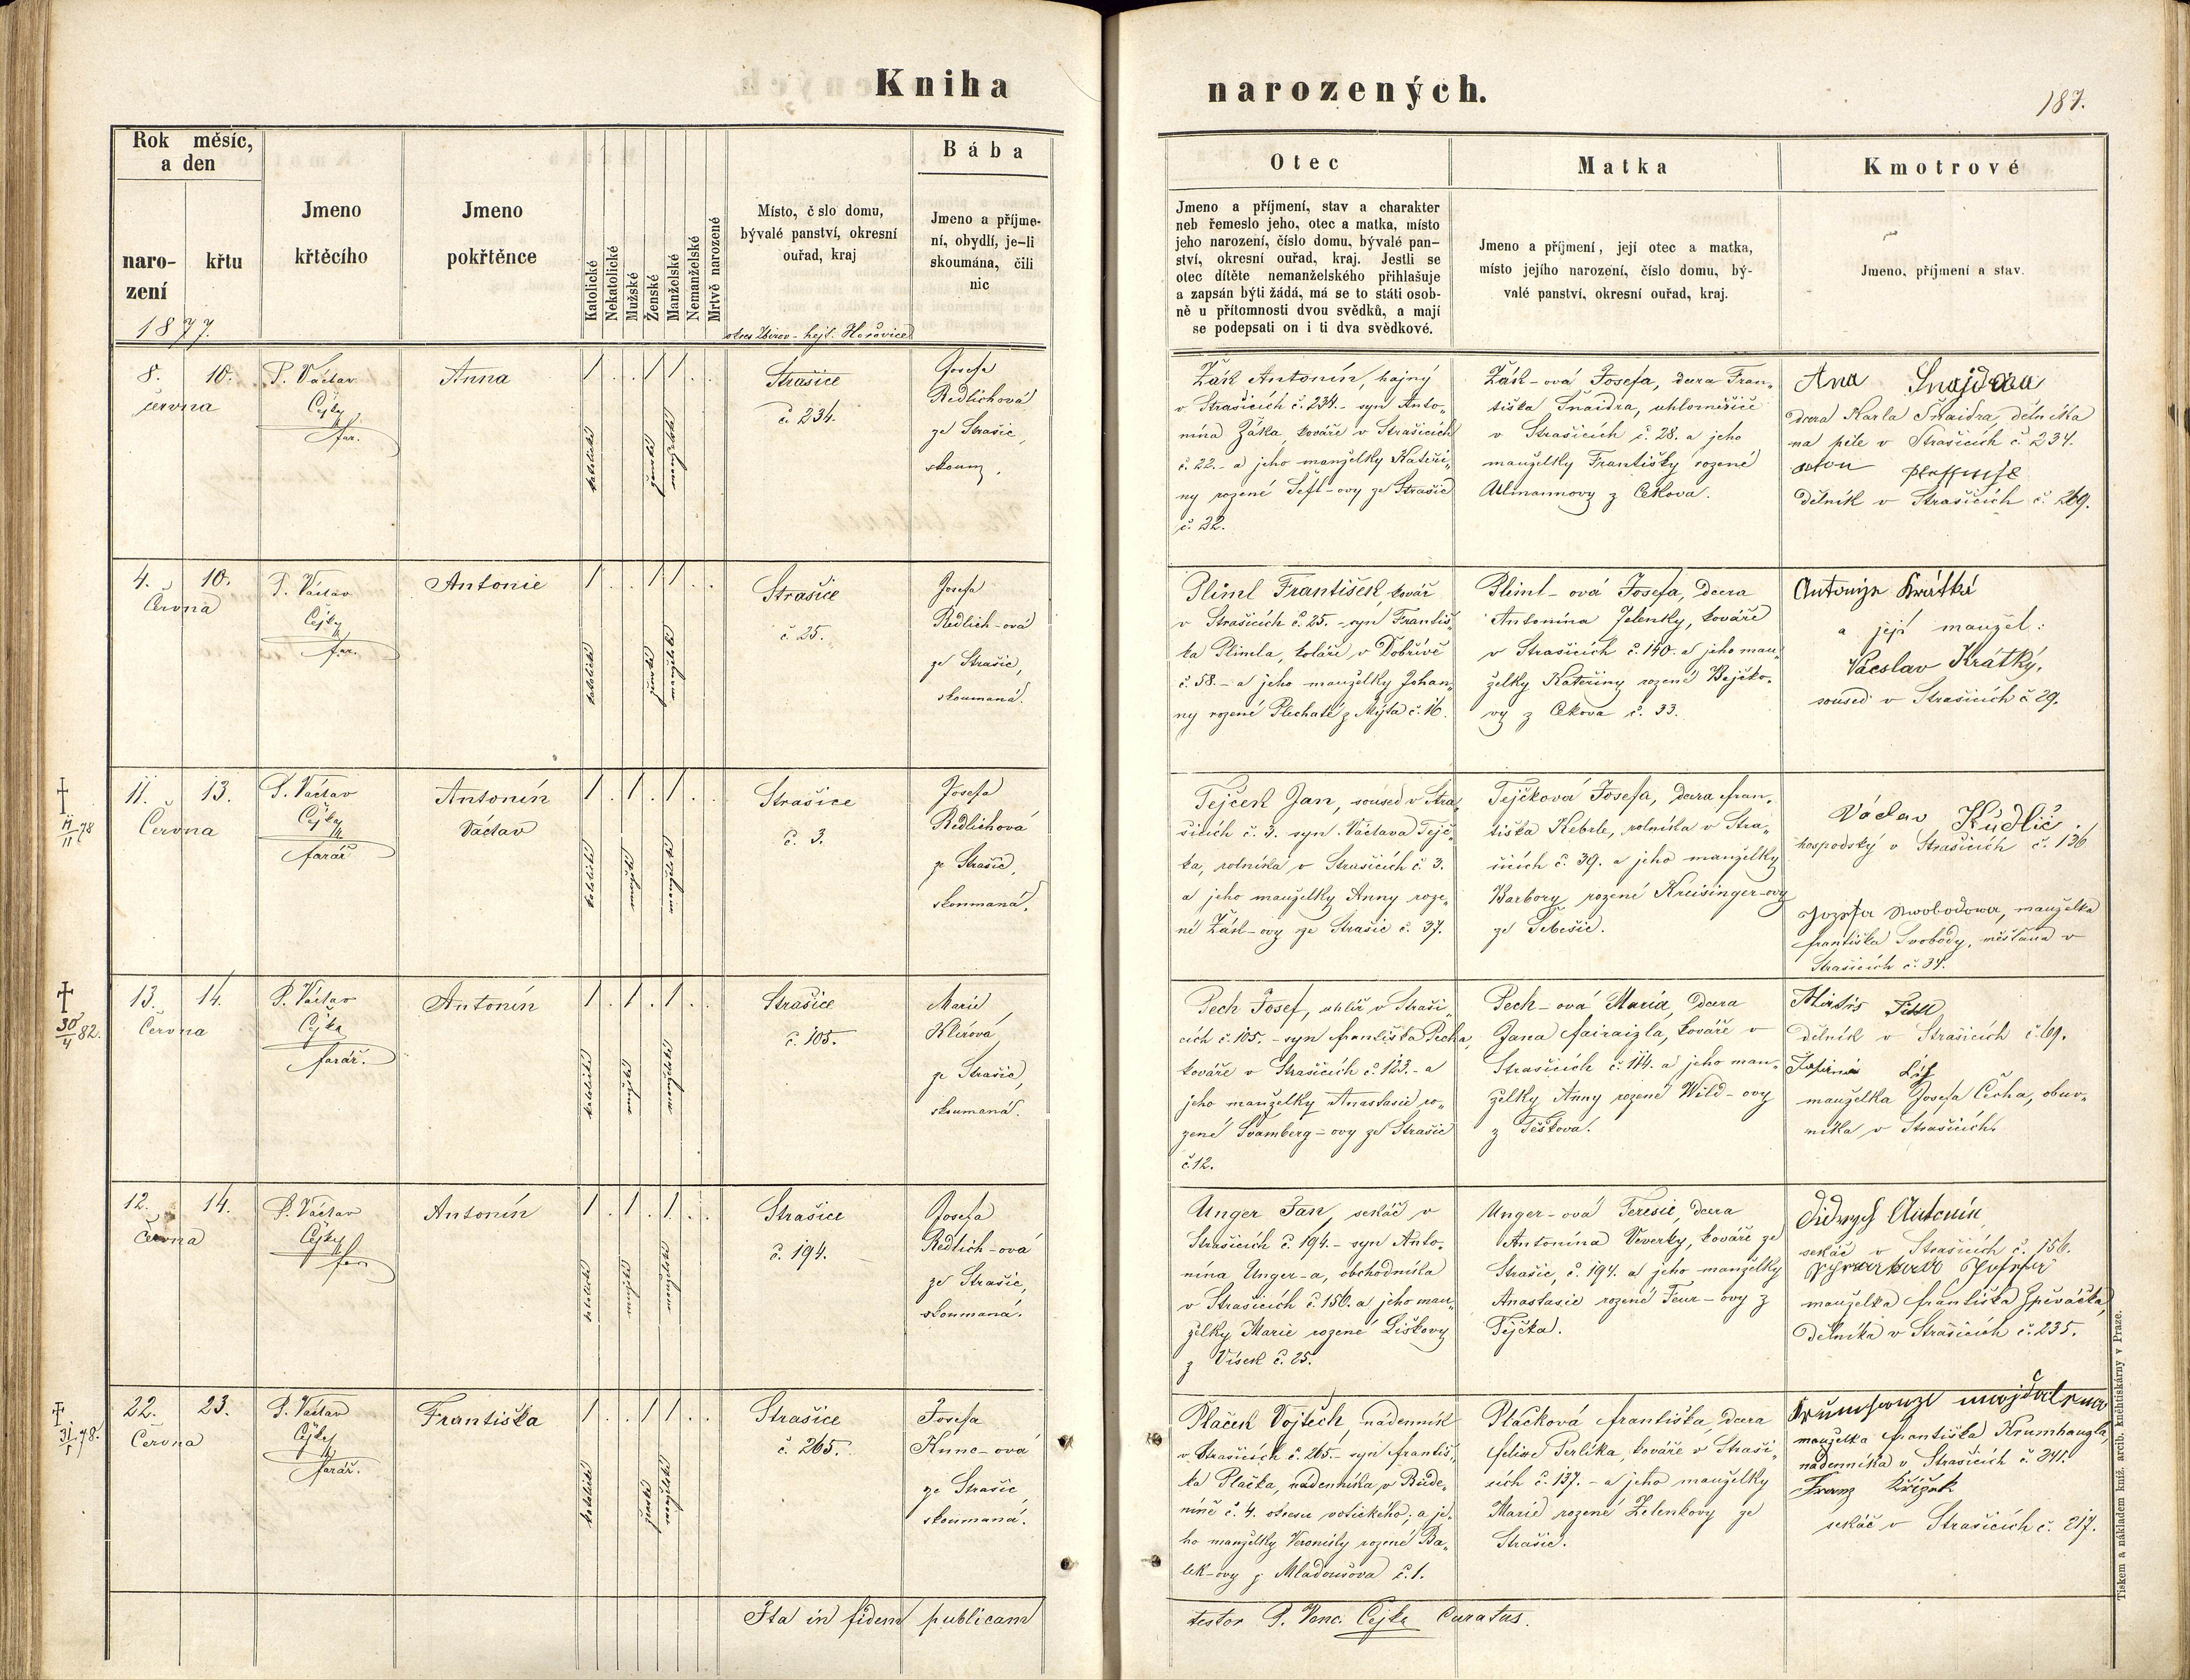 Kniha
narozených.
187.
Rok měsíc,
a den
naro-
zení
křtu
1877.
Jmeno
křtěcího
Jmeno
pokřtěnce
Katolické
Nekatolické
Mužské
Ženské
Manželské
Nemanželské
Mrtvě narozené
Místo, č slo domu,
bývalé panství, okresní
ouřad, kraj
okres Zbirov - hejt. Hořovice
Bába
Jmeno a příjme-
ní, obydlí, je-li
skoumána, čili
nic
Otec
Jmeno a příjmení, stav a charakter
neb řemeslo jeho, otec a matka, místo
jeho narození, číslo domu, bývalé pan-
ství, okresní ouřad, kraj. Jestli se
otec dítěte nemanželského přihlašuje
a zapsán býti žádá, má se to státi osob-
ně u přítomnosti dvou svědků, a mají
se podepsati on i ti dva svědkové.
Matka
Jmeno a příjmení, její otec a matka,
místo jejího narození, číslo domu, bý-
valé panství, okresní ouřad, kraj.
Kmotrové
Jmeno, příjmení a stav.
8. 10.
června
P. Václav
Čejka
far.
Anna
katolické
ženské
manželské
Strašice
č. 234.
Josefa
Redlichová
ze Strašic,
skoum.
Žák Antonín, hajný
v Strašicích č. 234. - syn Anto-
nína Žáka, kováře v Strašicích
č. 22. - a jeho manželky Kateři-
ny rozené Šefl-ovy ze Strašic
č. 32.
Žák-ová Josefa, dcera Fran-
tiška Šnaidra, uhloměřiče
v Strašicích č. 28. a jeho
manželky Františky rozené
Allmannovy z Cekova.
Ana Snajdrau
dcera Karla Šnaidra, dělníka
na pile v Strašicích č. 234.
dělník v Strašicích č. 269.
4. 10.
Června
P. Václav
Čejka
far.
Antonie
katolické
ženské
manželské
Strašice
č. 25.
Josefa
Redlich-ová
ze Strašic,
skoumaná.
Pliml František, kovář
v Strašicích č. 25. - syn Františ-
ka Plimla, koláře v Dobřívě
č. 58. - a jeho manželky Johan-
ny rozené Plechaté z Mýta č. 16.
Pliml-ová Josefa, dcera
Antonína Jelenky, kováře
v Strašicích č. 140. a jeho man-
želky Kateřiny rozené Bejčko-
vy z Cekova č. 33.
Antonye Krátká
a její manžel:
Vácslav Krátký,
soused v Strašicích č. 29.
† 14/11 78
11. 13.
Června
P. Václav
Čejka
farář
Antonín
Václav
katolické
mužské
manželské
Strašice
č. 3.
Josefa
Redlichová
ze Strašic,
skoumaná.
Tejček Jan, soused v Stra-
šicích č. 3. syn Václava Tejč-
ka, rolníka v Strašicích č. 3.
a jeho manželky Anny roze-
né Žák-ovy ze Strašic č. 37.
Tejčková Josefa, dcera Fran-
tiška Kebrle, rolníka v Stra-
šicích č. 39. a jeho manželky
Barbory rozené Kreisinger-ovy
ze Těbešic.
Václav Kudlič
hospodský v Strašicích č. 136
Jozefa Swobodowa, manželka
Františka Svobody, měšťana v
Strašicích č. 34.
† 30/4 82.
13. 14.
Června
P. Václav
Čejka
farář.
Antonín
katolické
mužské
manželské
Strašice
č. 105.
Marie
Klírová
ze Strašic,
skoumaná.
Pech Josef, uhlíř v Straši-
cích č. 105. - syn Františka Pecha,
kováře v Strašicích č. 123. - a
jeho manželky Anastasie ro-
zené Švamberg-ovy ze Strašic
č. 12.
Pech-ová Maria, dcera
Jana Fairaizla, kováře v
Strašicích č. 114. a jeho man-
želky Anny rozené Wild-ovy
z Těškova.
dělník v Strašicích č. 69.
manželka Josefa Čecha, obuv-
níka v Strašicích.
12. 14.
Června
P. Václav
Čejka
far.
Antonín
katolické
mužské
manželské
Strašice
č. 194.
Josefa
Redlich-ová
ze Strašic,
skoumaná.
Unger Jan, sekáč v
Strašicích č. 194. - syn Anto-
nína Unger-a, obchodníka
v Strašicích č. 156. a jeho man-
želky Marie rozené Liškovy
z Vísek č. 25.
Unger-ová Teresie, dcera
Antonína Veverky, kováře ze
Strašic, č. 194. a jeho manželky
Anastasie rozené Feur-ovy z
Tejčka.
Antonín
sekáč v Strašicích č. 156.
manželka Františka Zpěváčka,
dělníka v Strašicích č. 235.
† 31/1 78.
22. 23.
Června
P. Václav
Čejka
farář.
Františka
katolické
ženské
manželské
Strašice
č. 265.
Josefa
Kunc-ová
ze Strašic,
skoumaná.
Plaček Vojtěch, nadenník
v Strašicích č. 265. - syn Františ-
ka Plačka, nádenníka v Bude-
níně č. 4. okresu votického; a je-
ho manželky Veroniky rozené Ba-
lek-ovy z Mladoušova č. 1.
Plačková Františka, dcera
Felixe Perlíka, kováře v Straši-
cích č. 137. - a jeho manželky
Marie rozené Zelenkovy ze
Strašic.
manželka Františka Krumhaugla,
nádenníka v Strašicích č. 241.
Franz Křižek
sekáč v Strašicích č. 217.
Ita in fidem publicam
testor P. Venc. Čejka Curatus.
Tiskem a nákladem kníž. arcib. knihtiskárny v Praze.